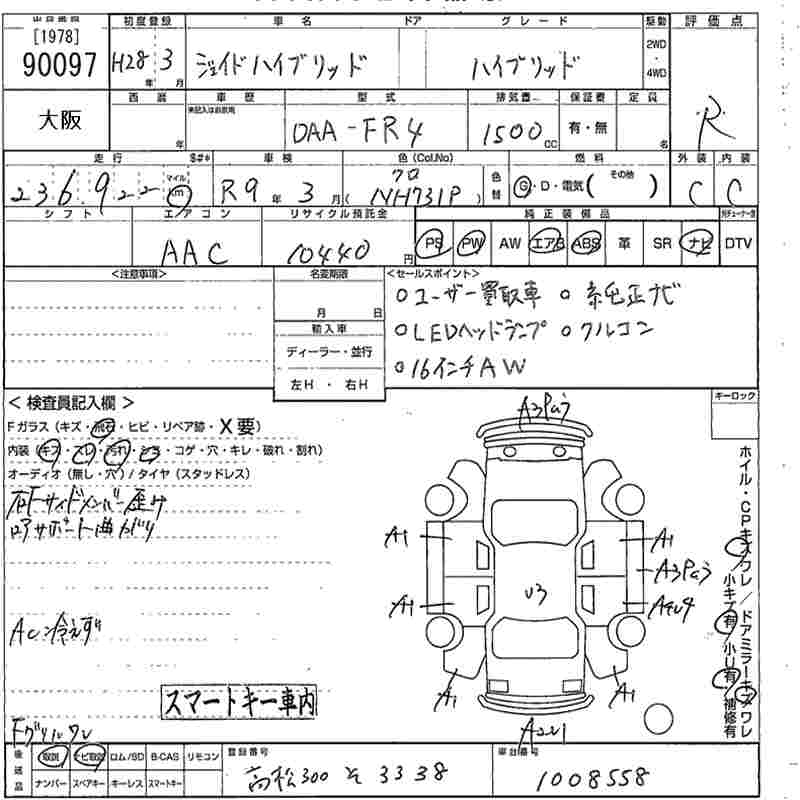 [1978]
90097
大阪
初度登録 車名 ドア グレード 駆動 評価点
H28年 3月 ジェイドハイブリッド ハイブリッド 2WD・4WD
R
西暦 車歴 型式 排気量 保証書 定員
年 未記入は自家用 DAA-FR4 1500cc 有・無 名
走行 $#* 車検 色(Col.No) 色替 燃料 外装 内装
236,922 マイル km R9年3月 クロ (NH731P) G・D・電気( その他 ) C C
シフト エアコン リサイクル預託金 純正装備品
AAC 10440円 PS PW AW エアB ABS 革 SR ナビ DTV
<注意事項> 名変期限 <セールスポイント>
月 日
○ユーザー買取車 ○純正ナビ
輸入車
○LEDヘッドランプ ○クルコン
ディーラー・並行
○16インチAW
左H・右H
< 検査員記入欄 > キーロック
Fガラス (キズ・飛石・ヒビ・リペア跡・X要)
内装 (キズ・スレ・汚れ・シミ・コゲ・穴・キレ・破れ・割れ)
オーディオ (無し・穴) / タイヤ (スタッドレス)
右Fサイドメンバー歪み
ロアサポート曲がり
ACン冷えず
スマートキー車内
Fグリルワレ
A3Pa3
A1 A1
A3Pa3
A1 U3 A4U4
A1 A1
A2U1
ホイル・CPキズワレ / ドアミラーキズワレ
小キズ有 小U有 補修有
後送品 取説 ナビ取説 ロム/SD B-CAS リモコン 登録番号 車台番号
ナンバー スペアキー キーレス スマートキー 高松300 そ 3338 1008558